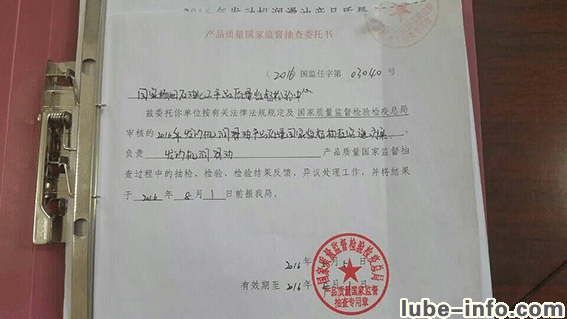 2016年发动机润滑油产品质量
产品质量国家监督抽查委托书
〔2016〕国监任字第 03040 号
兹委托你单位按有关法律法规规定及国家质量监督检验检疫总局
审核的2016年发动机润滑油产品质量国家监督抽查实施方案,
负责 发动机润滑油 产品质量国家监督抽
查过程中的抽检、检验、检验结果反馈、异议处理工作,并将结果
于 2016 年 8 月 1 日前报我局。
2016年
有效期至 2016年
国家质量监督检验检疫总局
产品质量国家监督
抽查专用章
lube-info.com